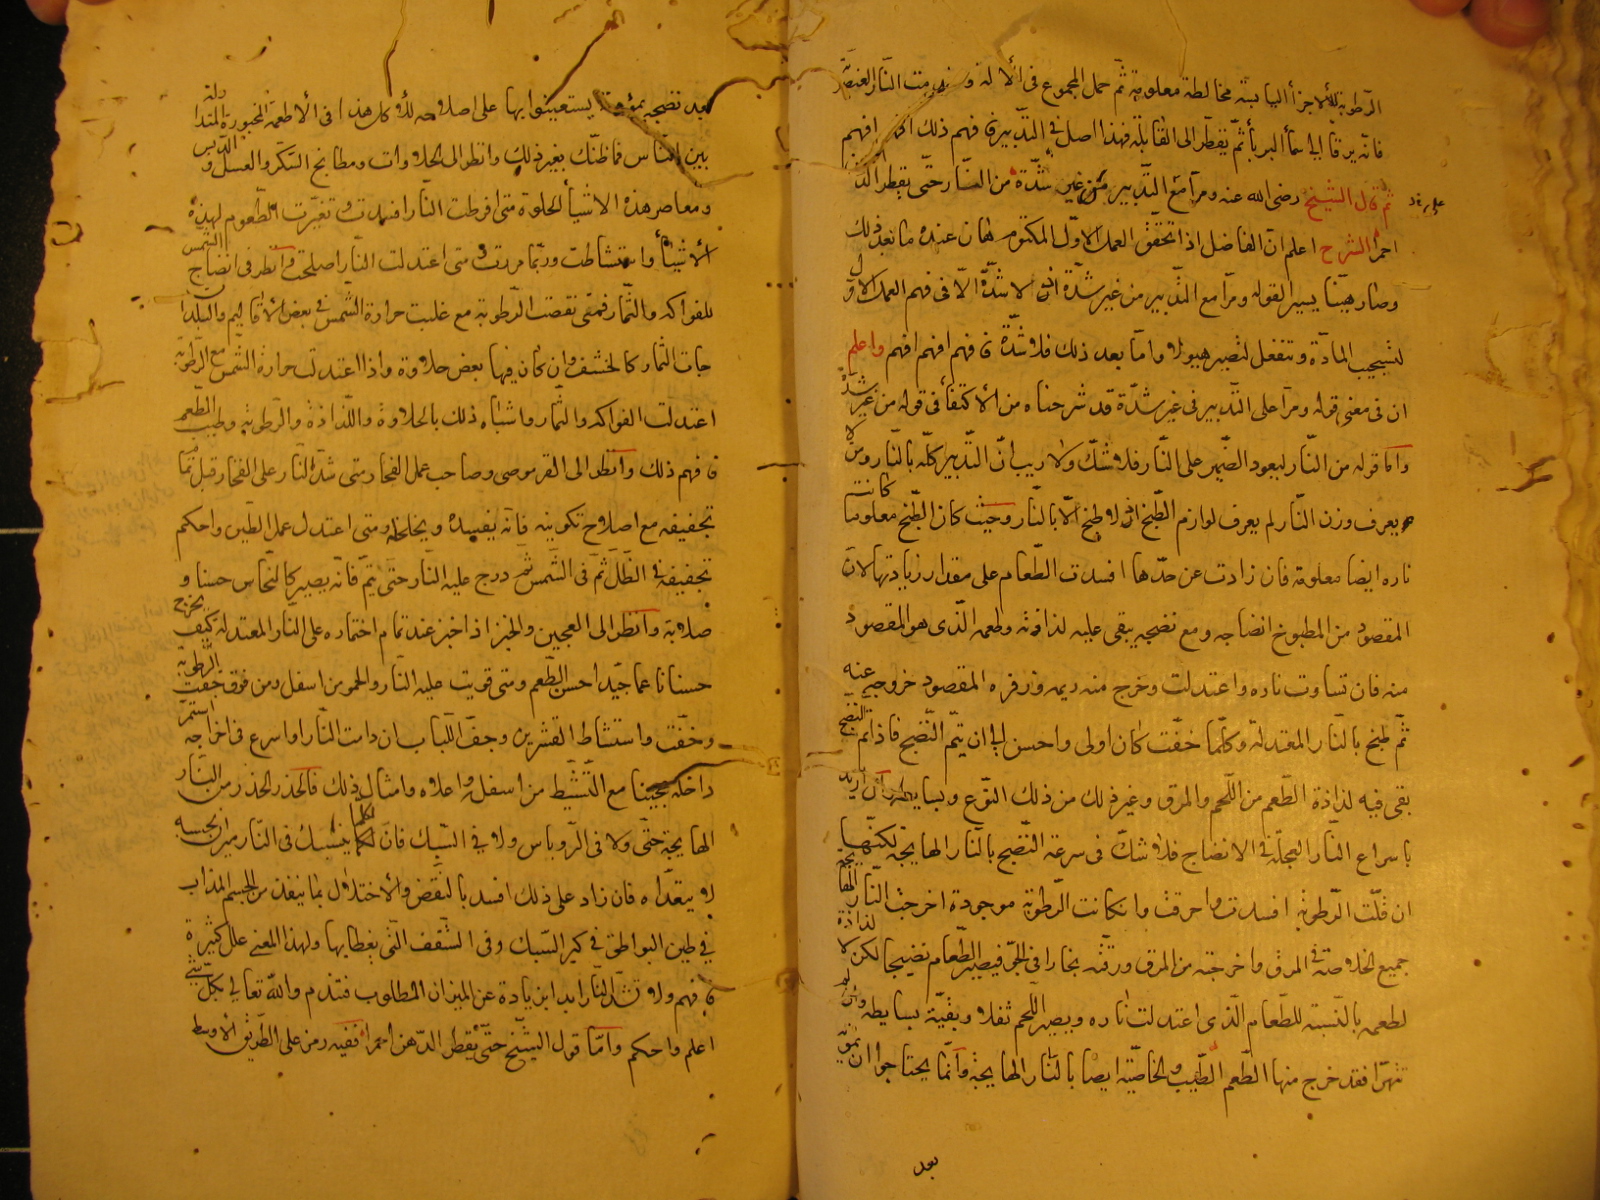 الرطوبة للأجزأ اليابسة مخالطة معلومة ثم حمل المجموع في الآلة و من النار العنصر
فانه يرقا الى سمأ البربأ ثم يقطر الى القابلة فهذا اصل في التدبير فافهم ذلك افهم
ثم قال الشيخ رضى الله عنه ومرا مع التدبير من غير شدة من النار حتى يقطر الد
احمرا الشرح اعلم ان الفاضل اذا تحقق العمل الاول المكتوم هان عنده ما بعد ذلك
وصار هينا يسيرا لقوله ومرا مع التدبير من غير شدة اذ لا شدة الا في فهم العمل الاول
لتستجيب المادة وتنفعل لتصير هيولا واما بعد ذلك فلا شدة فافهم افهم افهم واعلم
ان في معنى قوله ومرا على التدبير في غير شدة قد شرحناه من الاكتفأ في قوله من غير شدة
واما قوله من النار ليعود الضمير على النار فلا شك ولا ريب ان التدبير كله بالنار ومن لا
يعرف وزن النار لم يعرف لوازم الطبخ اذ لا طبخ الا بالنار وحيث كان الطبخ معلوما كانت
ناره ايضا معلومة فان زادت عن حدها افسدت الطعام على مقدار زيادتها لان
المقصود من المطبوخ انضاجه ومع نضجه يبقى عليه لذاذته وطعمه الذى هو المقصود
منه فان تساوت ناره واعتدلت وخرج منه ريمه وزفره المقصود خروجه عنه
ثم طبخ بالنار المعتدلة وكلما خفت كان اولى واحسن الى ان يتم النضج فاذا تم النضج
بقى فيه لذاذة الطعم من اللحم والمرق وغير ذلك من ذلك النوع وبسايطه اريد
باسراع النار العجلة في الانضاج فلا شك في سرعة النضج بالنار الهايجة لكنها
ان قلت الرطوبة افسدت واحرقت وان كانت الرطوبة موجودة اخرجت النار الهايجة
جميع الخلاصة في المرق واخرجته من المرق ورقته بخارا في الجو فيصير الطعام نضيجا لكن لا لذاذة
لطعمه بالنسبة للطعام الذى اعتدلت ناره ويصير اللحم ثفلا وبقية بسايطه
تهرا فقد خرج منها الطعم الطيب والخاصية ايضا بالنار الهايجة وانما يحتاجوا ان
بعد
بعد نضجه يستعينوا بها على اصلاحه لذلك وكل هذا في الأطعمة المخبورة المتداولة
بين الناس فما ظنك بغير ذلك وانظر الى الحلاوات ومطابخ السكر والعسل و الدبس
ومعاصر هذه الاشيأ الحلوة متى افرطت النار افسدت وتغيرت الطعوم لهذه
الأشيأ واستشاطت وربما مررت ومتى اعتدلت النار اصلحت وانظر في انضاج الشمس
للفواكه والثمار فمتى نقصت الرطوبة مع غلبت حرارة الشمس في بعض الأقاليم والبلدان
جات الثمار كالخشف وان كان فيها بعض حلاوة واذا اعتدلت حرارة الشمس مع الرطوبة
اعتدلت الفواكه والثمار وما شباه ذلك بالحلاوة واللذاذة والرطوبة وطيب الطعم
فافهم ذلك وانظر الى القرموصى وصاحب عمل الفخار متى شد النار على الفخار قبل تمام
تجفيفه مع اصلاح تكوينه فانه يفسده ويخلخله ومتى اعتدل عمل الطين واحكم
تجفيفه في الظل ثم في الشمس ثم درج عليه النار حتى يتم فانه يصير كالنحاس حسنا و
صلابة وانظر الى العجين والخبز اذا خبز عند تمام اختماره على النار المعتدلة كيف يخرج
حسنا ناعما جيدا حسن الطعم ومتى قويت عليه النار والحمو من اسفل ومن فوق جفت الرطوبة
وخفت واستشاط القشرين وجف اللباب ان دامت النار او اسرع في اخراجه استمر
داخله عجينا مع التشيط من اسفله واعلاه وامثال ذلك فالحذر الحذر من النار
الهايجة حتى ولا في الروباس ولا في السبك فان لكلما ينسبك في النار ميزان بحسبه
لا يتعداه فان زاد على ذلك افسد بالنقض والأختلال بما ينفذ من الجسم المذاب
في طين البواطق في كير السباك وفي الشقف التى يغطا بها ولهذا المعنى علل كثيرة
فافهم ولا تشد النار ابدا بزيادة عن الميزان المطلوب فتندم والله تعالى بكل شئ
اعلم واحكم واما قول الشيخ حتى يقطر الدهن احمرا ففيه رمز على الطريق الأوسط